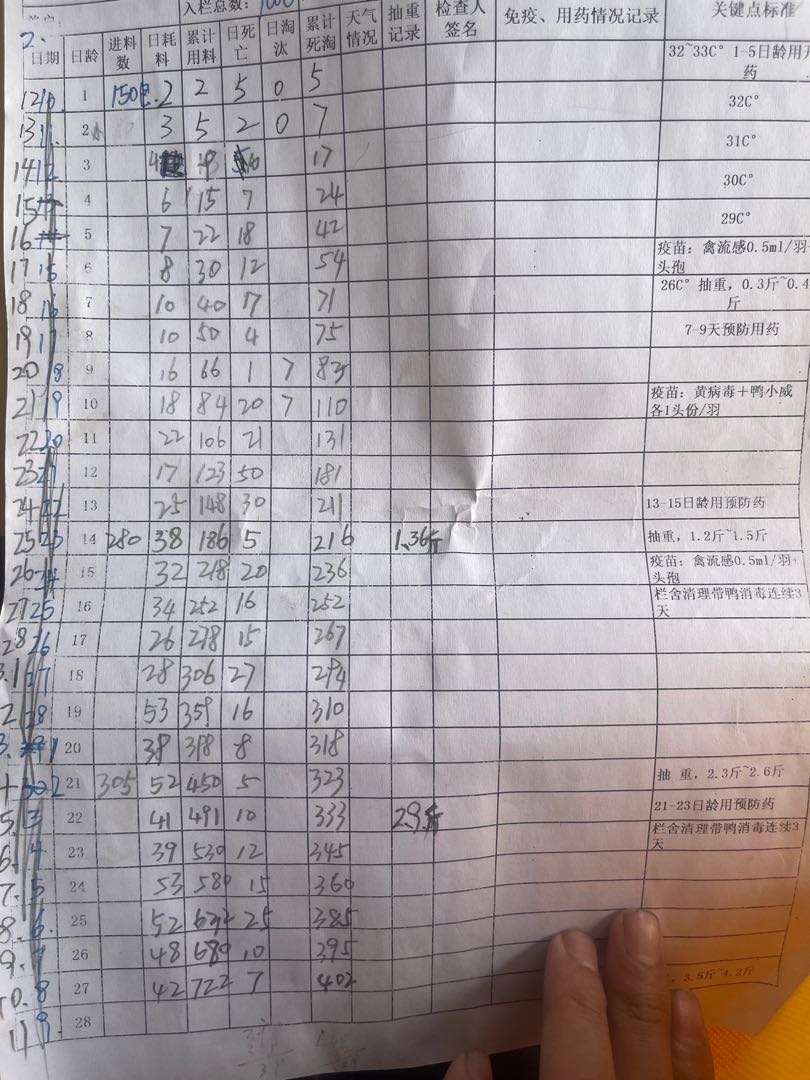 入栏总数：
2.
日期 日龄 进料数 日耗料 累计用料 日死亡 日淘汰 累计死淘 天气情况 抽重记录 检查人签名 免疫、用药情况记录 关键点标准
1 150包. 2 2 5 0 5 32~33C° 1-5日龄用开药
2 3 5 2 0 7 32C°
3 17 31C°
4 6 15 7 24 30C°
5 7 22 18 42 29C°
6 8 30 12 54 疫苗：禽流感0.5ml/羽+头孢
7 10 40 17 71 26C° 抽重，0.3斤~0.4斤
8 10 50 4 75 7-9天预防用药
9 16 66 1 7 83
10 18 84 20 7 110 疫苗：黄病毒＋鸭小威各1头份/羽
11 22 106 21 131
12 17 123 50 181
13 25 148 30 211 13-15日龄用预防药
14 280 38 186 5 216 1.36斤 抽重，1.2斤~1.5斤
15 32 218 20 236 疫苗：禽流感0.5ml/羽+头孢
16 34 252 16 252 栏舍清理带鸭消毒连续3天
17 26 278 15 267
18 28 306 27 294
19 53 359 16 310
20 38 398 8 318
21 305 52 450 5 323 抽 重，2.3斤~2.6斤
22 41 491 10 333 2.9斤 21-23日龄用预防药
23 39 530 12 345 栏舍清理带鸭消毒连续3天
24 53 580 15 360
25 52 632 25 385
26 48 680 10 395
27 42 722 7 402 ，3.5斤~4.2斤
28